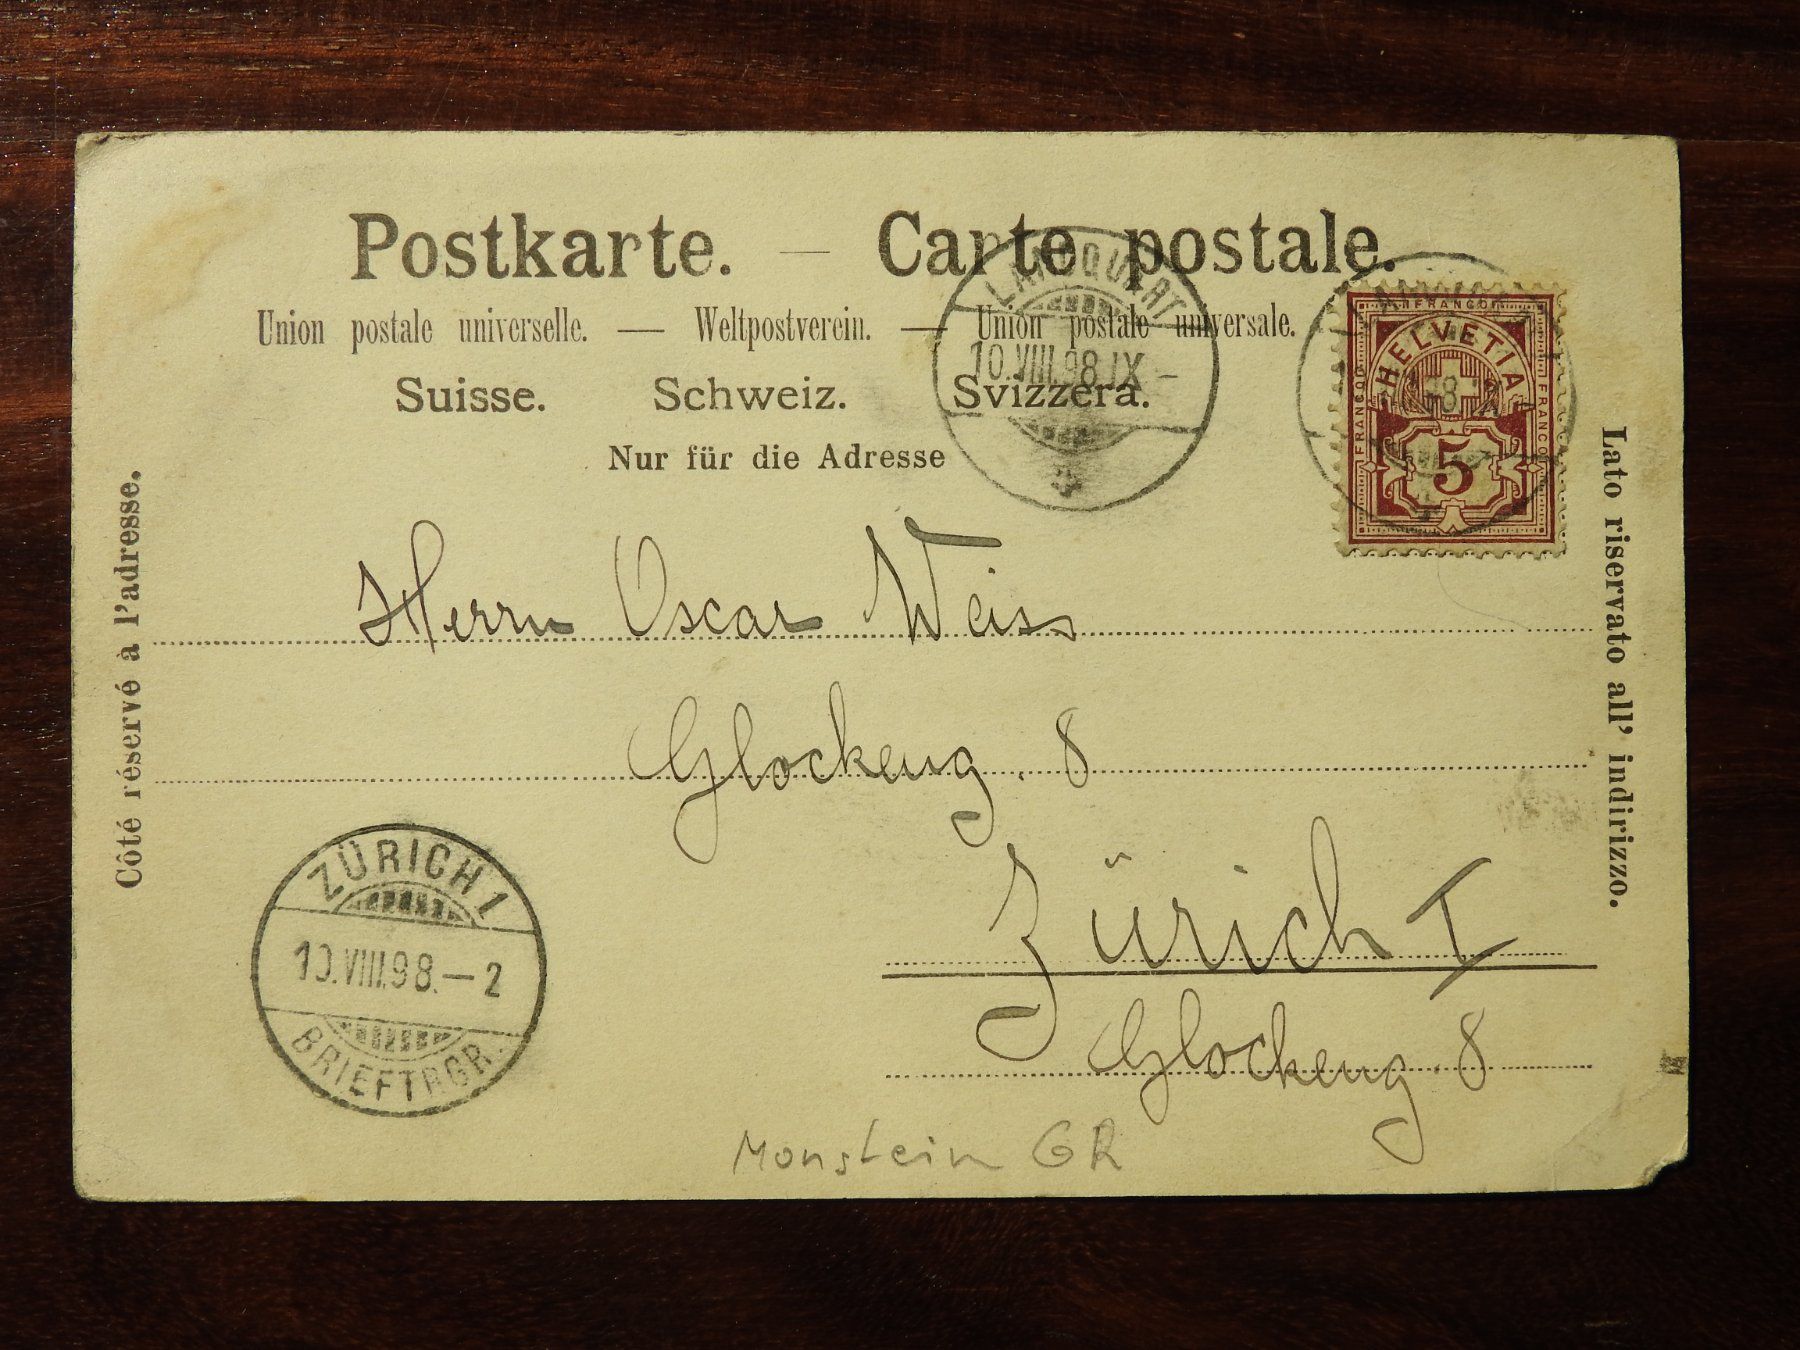 Postkarte. — Carte postale.
Union postale universelle. — Weltpostverein. — Union postale universale.
Suisse. Schweiz. Svizzera.
Nur für die Adresse
Côté réservé à l'adresse.
Lato riservato all' indirizzo.
LANDQUART
10.VIII.98.IX –
FRANCO
HELVETIA
FRANCO
FRANCO
5
Herrn Oscar Weiss
Glockeng. 8
Zürich I
Glockeng. 8
ZÜRICH 1
10.VIII.98.–2
BRIEFTRGR.
Monstein GR